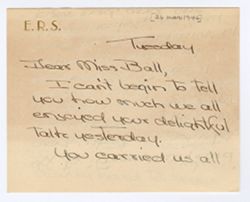 E.R.S.
[26 Mar 1946]
Tuesday
Dear Miss Ball,
I can't begin to tell
you how much we all
enjoyed your delightful
talk yesterday.
You carried us all